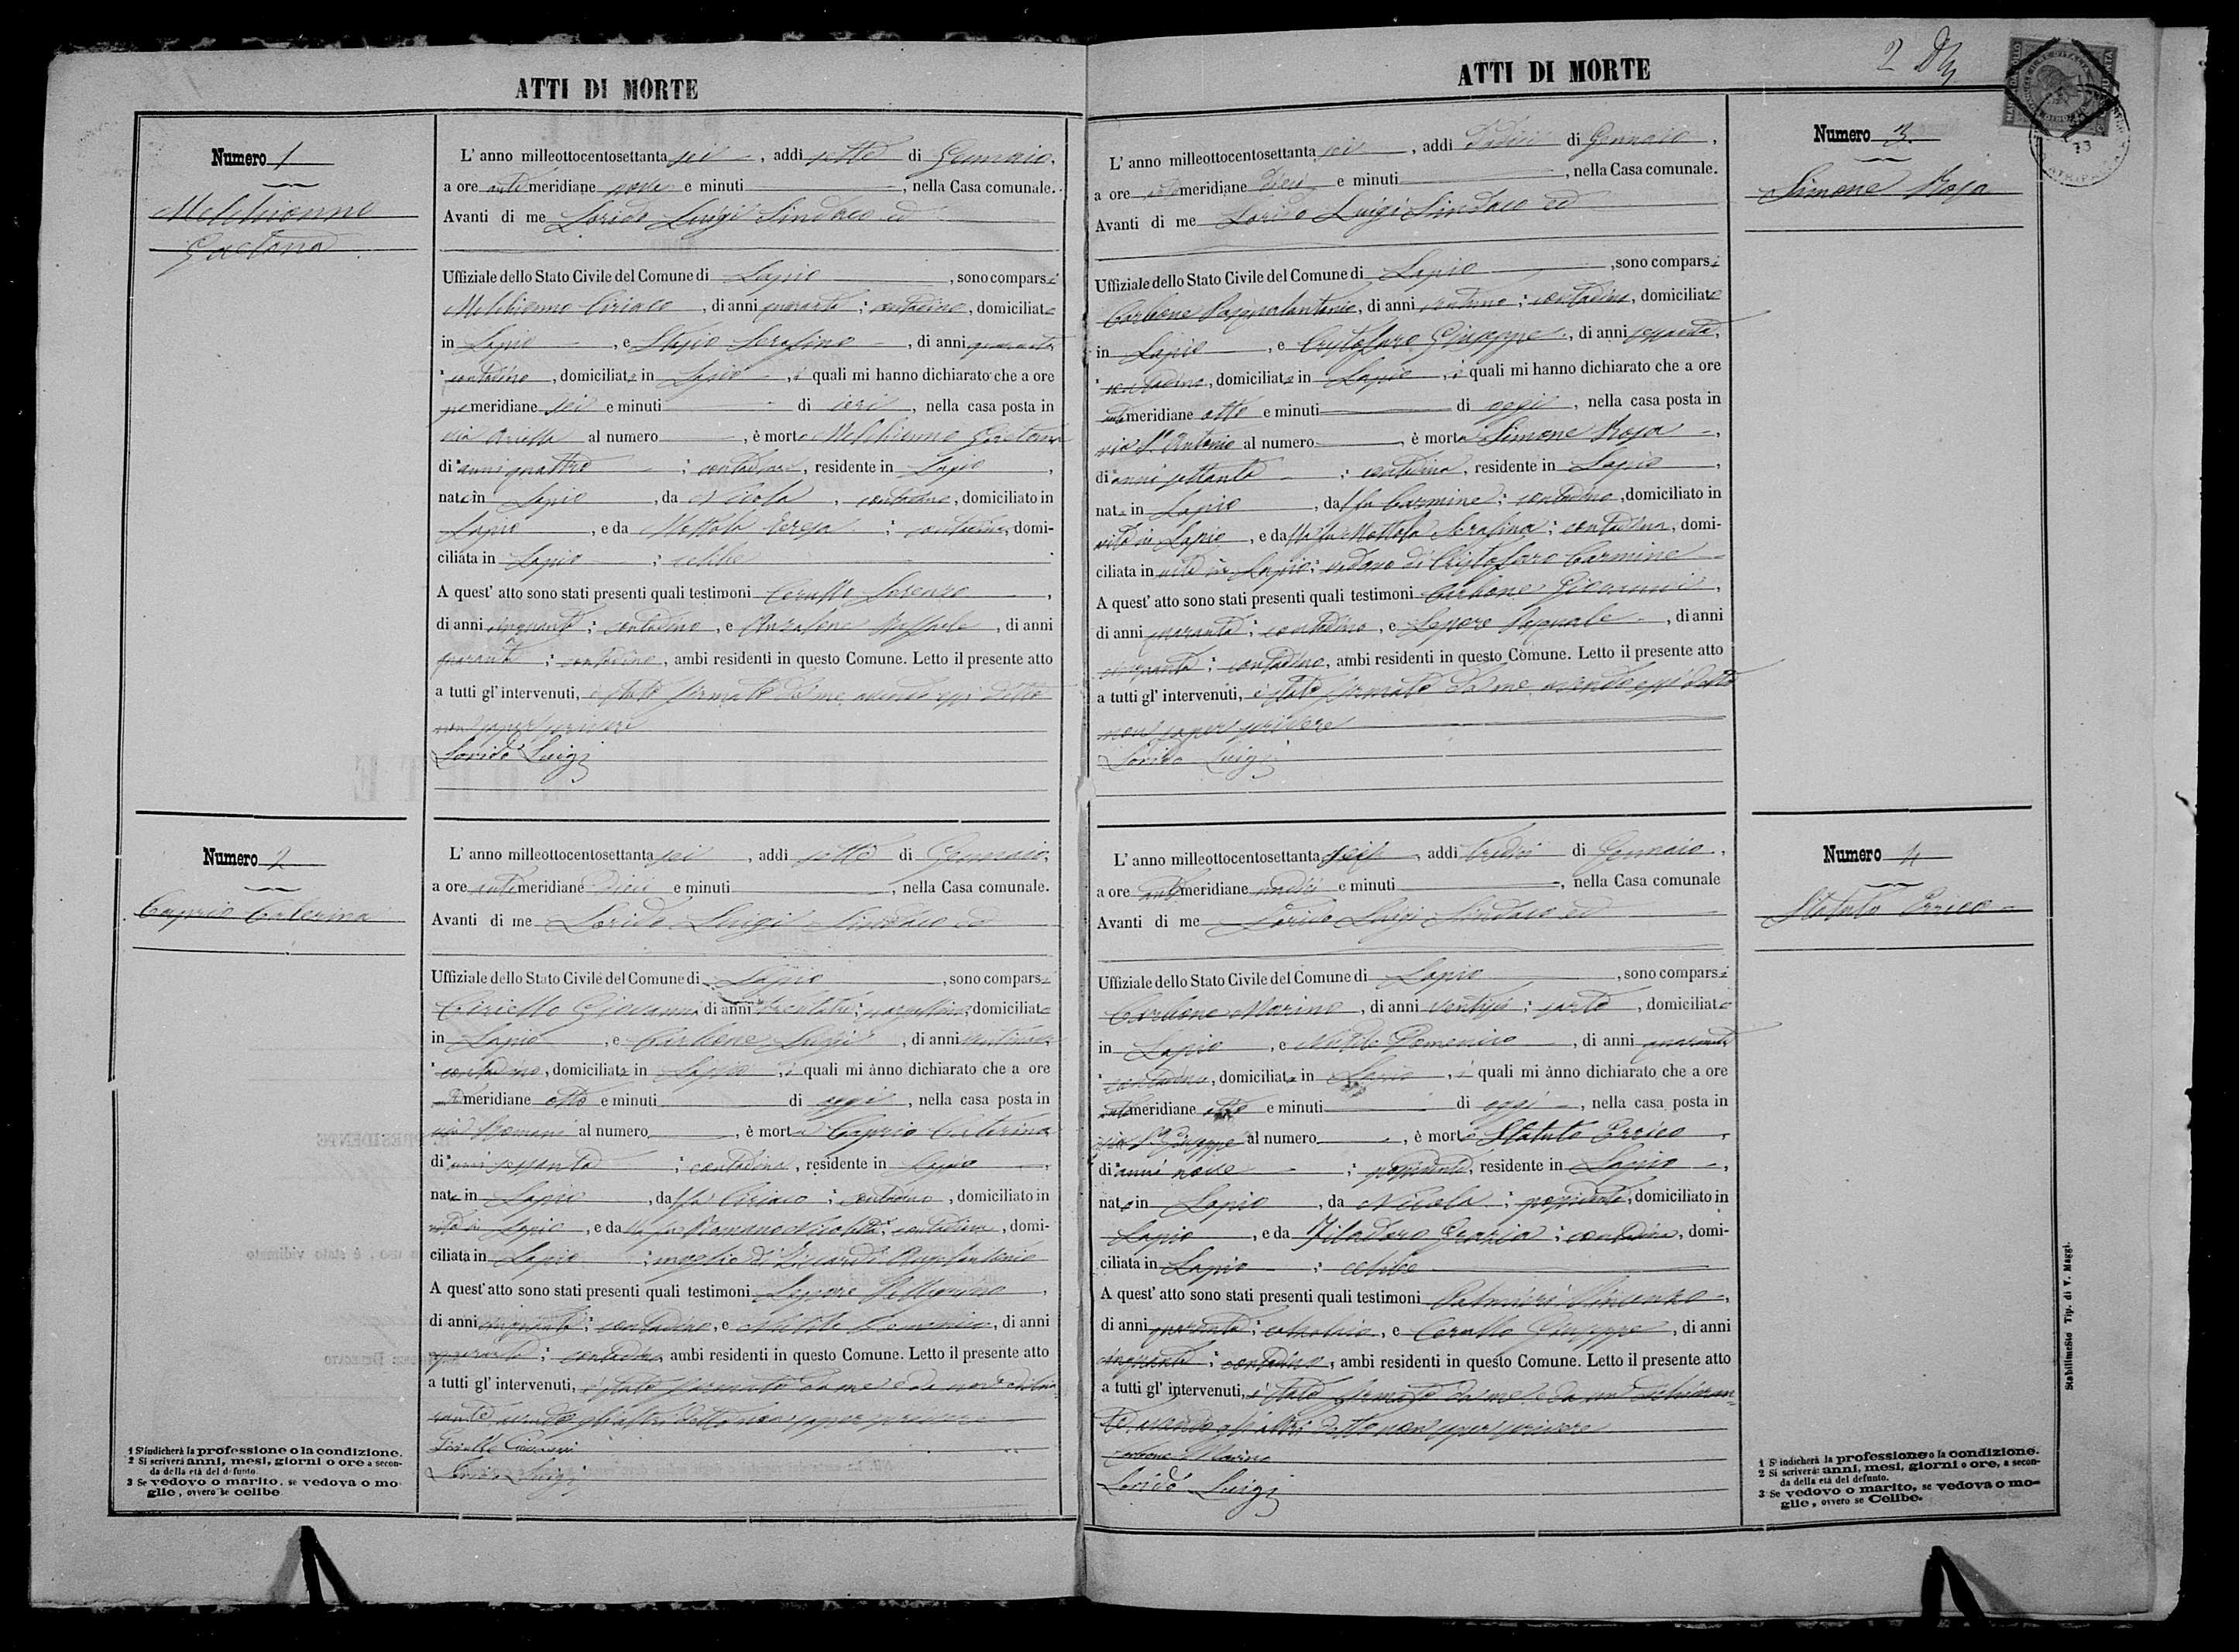 ATTI DI MORTE
Numero 1
Melchionno
Gaetano
L'anno milleottocentosettanta sei, addì sette di Gennaio,
a ore anti meridiane nove e minuti, nella Casa comunale.
Avanti di me Lorido Luigi Sindaco ed
Uffiziale dello Stato Civile del Comune di Lapio, sono comparsi
Melchionno Ciriaco, di anni quaranta; contadino, domiciliato
in Lapio, e Serafino, di anni quaranta
contadino, domiciliato in Lapio, i quali mi hanno dichiarato che a ore
pomeridiane sei e minuti di ieri, nella casa posta in
via al numero, è morto Melchionno Gaetano
di anni quattro; contadino, residente in Lapio,
nato in Lapio, da Nicola, contadino, domiciliato in
Lapio, e da Mottola Teresa; contadina, domi-
ciliata in Lapio; celibe
A quest'atto sono stati presenti quali testimoni Cerullo Lorenzo,
di anni cinquanta; contadino, e Raffaele, di anni
quaranta; contadino, ambi residenti in questo Comune. Letto il presente atto
a tutti gl'intervenuti, è stato firmato da me avendo essi detto
non saper scrivere
Lorido Luigi
Numero 2
Caprio Caterina
L'anno milleottocentosettanta sei, addì sette di Gennaio,
a ore antimeridiane dieci e minuti, nella Casa comunale.
Avanti di me Lorido Luigi Sindaco ed
Uffiziale dello Stato Civile del Comune di Lapio, sono comparsi
Ciriello Giovanni di anni, domiciliato
in Lapio, e Carbone Luigi, di anni
contadino, domiciliato in Lapio, i quali mi ànno dichiarato che a ore
antimeridiane otto e minuti di oggi, nella casa posta in
via Romani al numero, è morta Caprio Caterina
di anni sessanta; contadina, residente in Lapio,
nata in Lapio, da fu Ciriaco; contadino, domiciliato in
vita in Lapio, e da fu Romano Nicoletta; contadina, domi-
ciliata in Lapio; moglie di
A quest'atto sono stati presenti quali testimoni Lepore Pellegrino,
di anni cinquanta; contadino, e Domenico, di anni
quaranta; contadino, ambi residenti in questo Comune. Letto il presente atto
a tutti gl'intervenuti, è stato firmato da me e da un dichia-
rante, avendo gli altri detto non saper scrivere
Ciriello Giovanni
Lorido Luigi
1 S'indicherà la professione o la condizione.
2 Si scriverà anni, mesi, giorni o ore a secon-
da della età del defunto
3 Se vedovo o marito, se vedova o mo-
glie, ovvero se celibe
ATTI DI MORTE
2
Numero 3.
Simone Rosa
L'anno milleottocentosettanta sei, addì dodici di Gennaio,
a ore antimeridiane dieci e minuti, nella Casa comunale.
Avanti di me Lorido Luigi Sindaco ed
Uffiziale dello Stato Civile del Comune di Lapio, sono comparsi
Carbone Pasqualantonio, di anni; contadino, domiciliato
in Lapio, e Cristofaro Giuseppe, di anni sessanta,
contadino, domiciliato in Lapio, i quali mi hanno dichiarato che a ore
antimeridiane otto e minuti di oggi, nella casa posta in
via S. Antonio al numero, è morta Simone Rosa,
di anni settanta; contadina, residente in Lapio,
nata in Lapio, da fu Carmine; contadino, domiciliato in
vita in Lapio, e da fu Mottola Serafina; contadina, domi-
ciliata in vita in Lapio; vedova di Cristofaro Carmine
A quest'atto sono stati presenti quali testimoni Carbone Giovanni,
di anni quaranta; contadino, e Lepore Pasquale, di anni
cinquanta; contadino, ambi residenti in questo Comune. Letto il presente atto
a tutti gl'intervenuti, è stato firmato da me avendo essi detto
non saper scrivere
Lorido Luigi
Numero 4
Statuto Errico
L'anno milleottocentosettanta sei, addì tredici di Gennaio,
a ore antimeridiane undici e minuti, nella Casa comunale
Avanti di me Lorido Luigi Sindaco ed
Uffiziale dello Stato Civile del Comune di Lapio, sono comparsi
Carbone Marino, di anni ventisei; sarto, domiciliato
in Lapio, e Domenico, di anni quaranta
contadino, domiciliato in Lapio, i quali mi ànno dichiarato che a ore
antimeridiane otto e minuti di oggi, nella casa posta in
via S. Giuseppe al numero, è morto Statuto Errico,
di anni nove; possidente, residente in Lapio,
nato in Lapio, da Nicola; possidente, domiciliato in
Lapio, e da Filadoro Grazia; contadina, domi-
ciliata in Lapio; celibe
A quest'atto sono stati presenti quali testimoni Palmieri Vincenzo,
di anni quaranta; calzolaio, e Cerullo Giuseppe, di anni
cinquanta; contadino, ambi residenti in questo Comune. Letto il presente atto
a tutti gl'intervenuti, è stato firmato da me e da un dichiaran-
te, avendo gli altri detto non saper scrivere
Carbone Marino
Lorido Luigi
1 S'indicherà la professione o la condizione.
2 Si scriverà: anni, mesi, giorni o ore, a secon-
da della età del defunto.
3 Se vedovo o marito, se vedova o mo-
glie, ovvero se Celibe.
Stabilimento Tip. di V. Maggi.